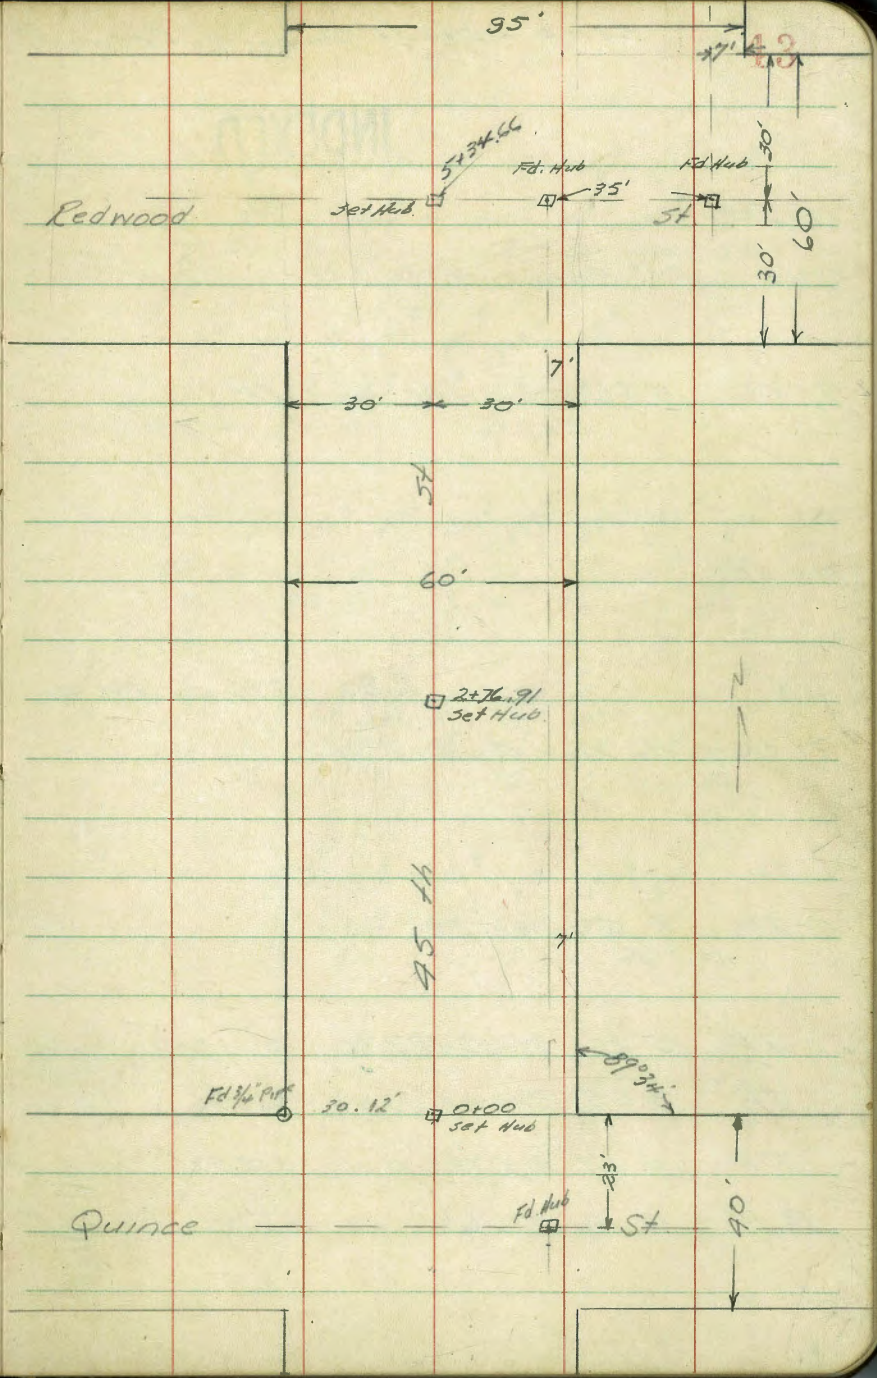 95'
7'
43
5+34.66
Fd. Hub
Fd Hub
30'
Set Hub
35'
Redwood
St
30'
60'
7'
30'
30'
St
60'
2+76.91
Set Hub
N
45 th
7'
89°34'
Fd 3/4" Pipe
30.12'
0+00
Set Hub
23'
Fd. Hub
Quince
St
40'